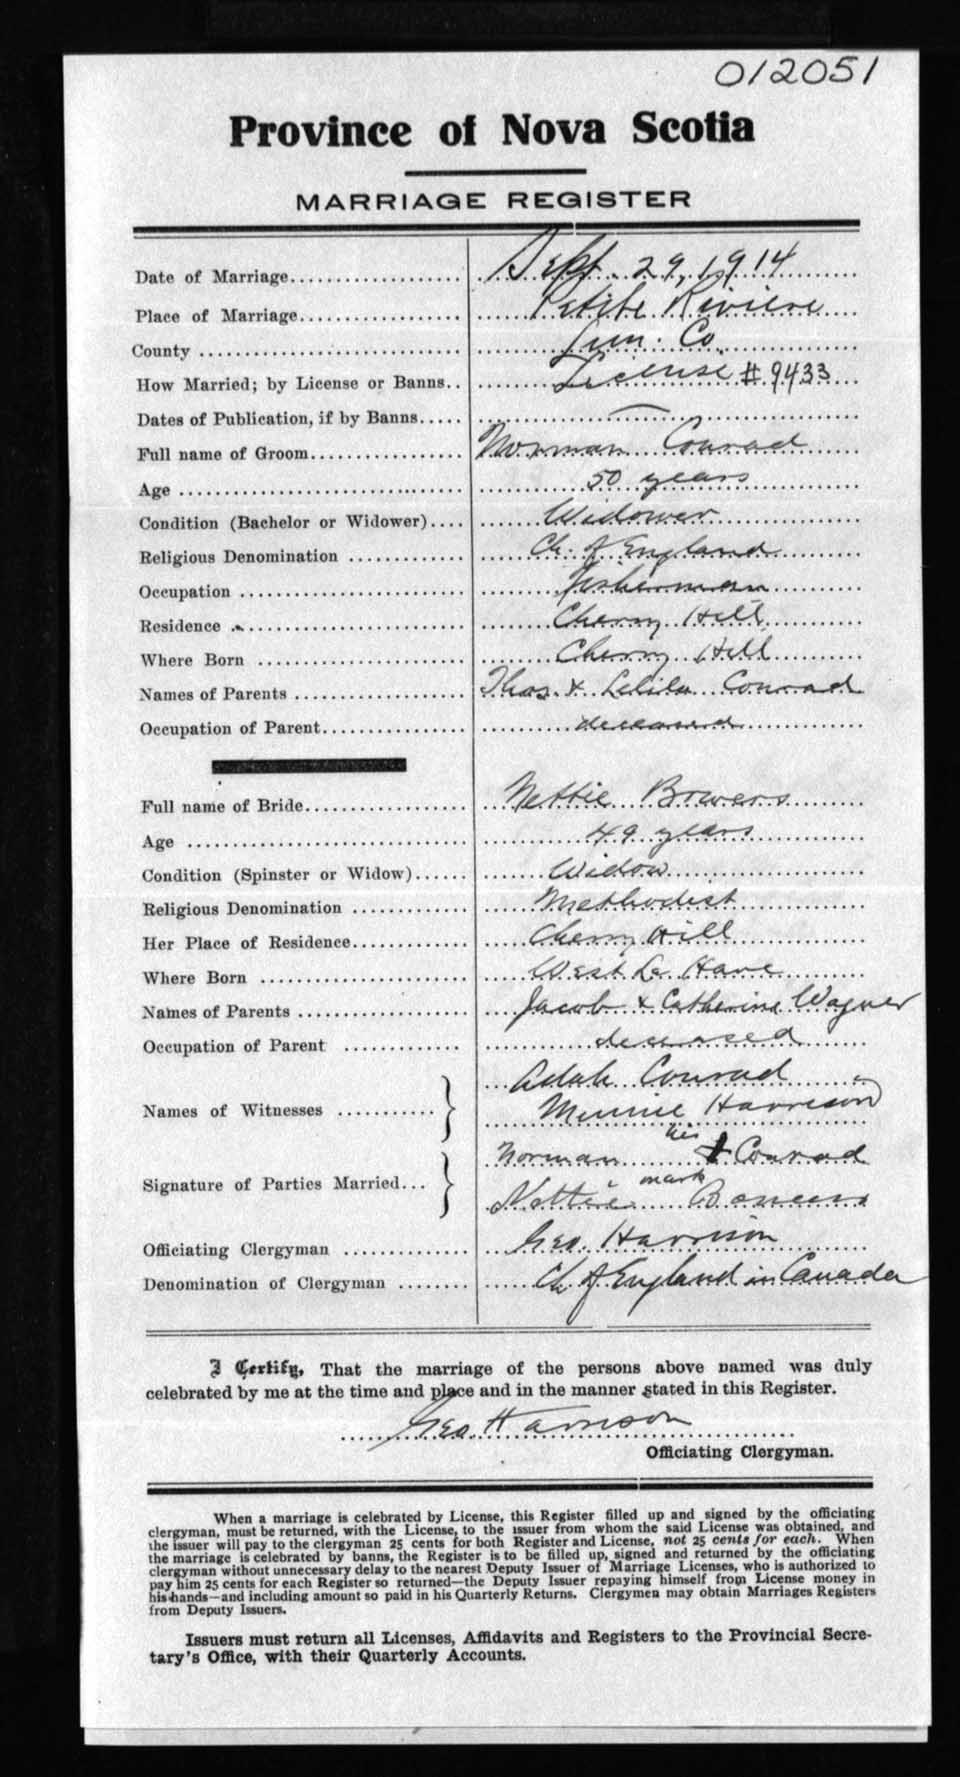 012051
Province of Nova Scotia
MARRIAGE REGISTER
Date of Marriage Sept. 29, 1914
Place of Marriage Petite Riviere
County Lun. Co.
How Married; by License or Banns License # 9433
Dates of Publication, if by Banns —
Full name of Groom Norman Conrad
Age 50 years
Condition (Bachelor or Widower) Widower
Religious Denomination Ch. of England
Occupation Fisherman
Residence Cherry Hill
Where Born Cherry Hill
Names of Parents Thos. & Conrad
Occupation of Parent deceased
Full name of Bride Nettie Bowers
Age 49 years
Condition (Spinster or Widow) Widow
Religious Denomination Methodist
Her Place of Residence Cherry Hill
Where Born West La Have
Names of Parents Jacob & Catherine Wagner
Occupation of Parent deceased
Names of Witnesses Adah Conrad
Minnie Harrison
Signature of Parties Married Norman his X mark Conrad
Nettie Bowers
Officiating Clergyman Geo. Harrison
Denomination of Clergyman Ch. of England in Canada
I Certify, That the marriage of the persons above named was duly
celebrated by me at the time and place and in the manner stated in this Register.
Geo. Harrison
Officiating Clergyman.
When a marriage is celebrated by License, this Register filled up and signed by the officiating
clergyman, must be returned, with the License, to the issuer from whom the said License was obtained, and
the issuer will pay to the clergyman 25 cents for both Register and License, not 25 cents for each. When
the marriage is celebrated by banns, the Register is to be filled up, signed and returned by the officiating
clergyman without unnecessary delay to the nearest Deputy Issuer of Marriage Licenses, who is authorized to
pay him 25 cents for each Register so returned—the Deputy Issuer repaying himself from License money in
his hands—and including amount so paid in his Quarterly Returns. Clergymen may obtain Marriages Registers
from Deputy Issuers.
Issuers must return all Licenses, Affidavits and Registers to the Provincial Secre-
tary's Office, with their Quarterly Accounts.